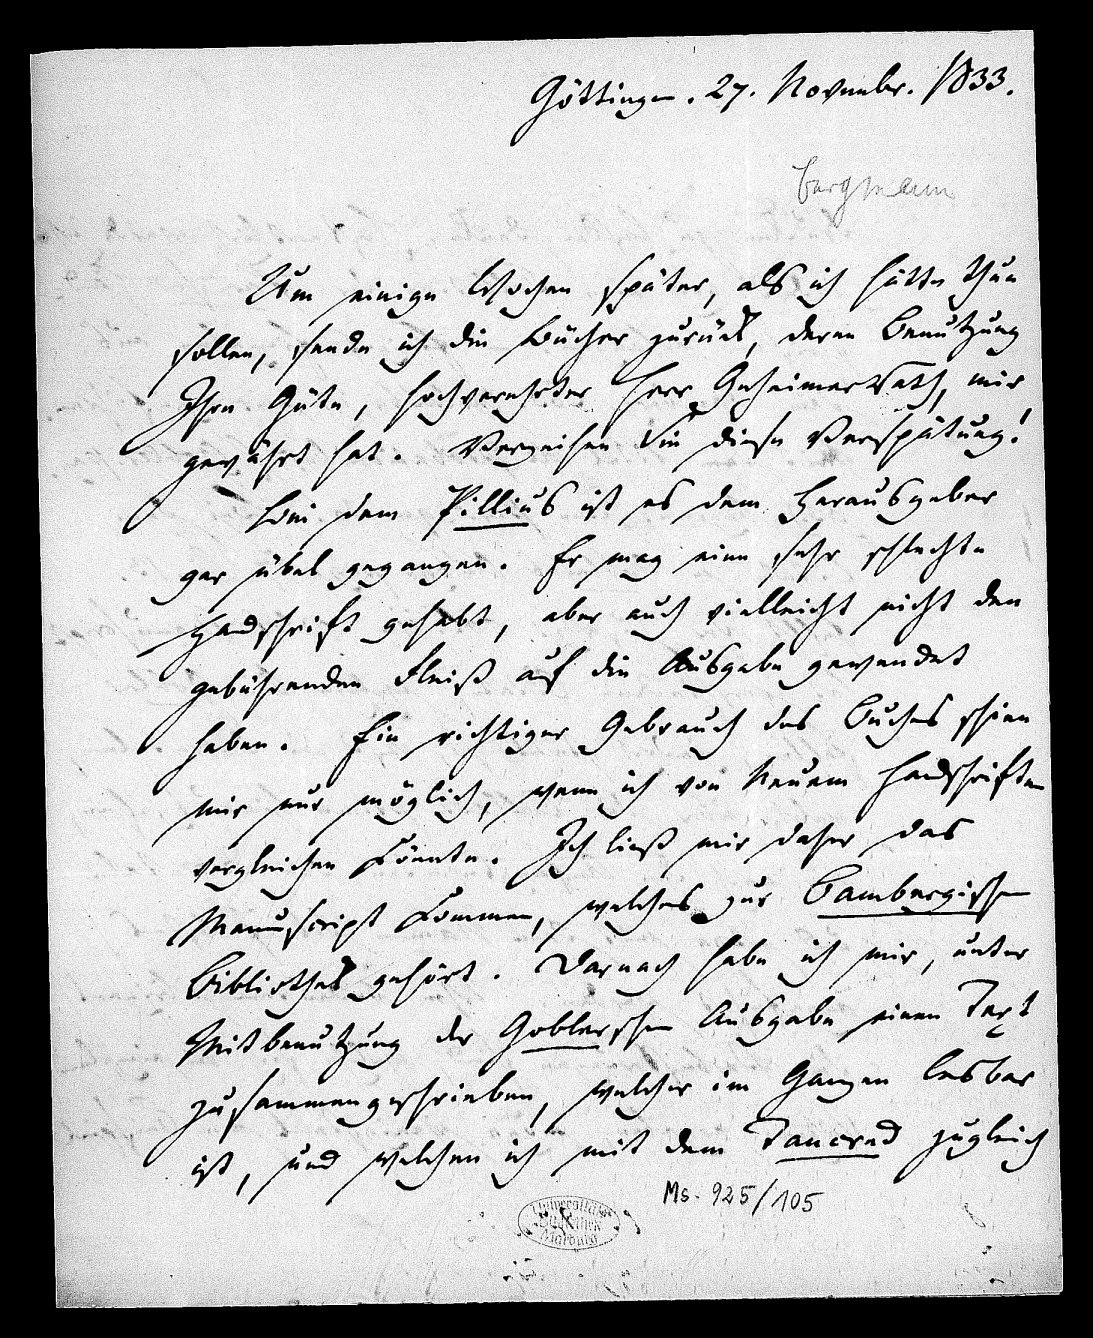 Göttingen. 27. November. 1833.
Bergmann
Um einige Wochen später, als ich hätte thun
sollen, sende ich die Bücher zurück, deren Benutzung
Ihre Güte, hochverehrter Herr Geheimerrath, mir
gewährt hat. Verzeihen Sie diese Verspätung!
Bei dem Pillius ist es dem Herausgeber
gar übel gegangen. Er mag eine sehr schlechte
Handschrift gehabt, aber auch vielleicht nicht den
gebührenden Fleiß auf die Ausgabe gewendet
haben. Ein richtiger Gebrauch des Buches schien
mir nur möglich, wenn ich von Neuem Handschriften
vergleichen könnte. Ich ließ mir daher das
Manuscript kommen, welches zur Bambergischen
Bibliothek gehört. Darnach habe ich mir, unter
Mitbenutzung der Goblerschen Ausgabe einen Text
zusammengeschrieben, welcher im Ganzen lesbar
ist, und welchen ich mit dem Tancred zugleich
Ms. 925/105
Universitäts
Bibliothek
Marburg